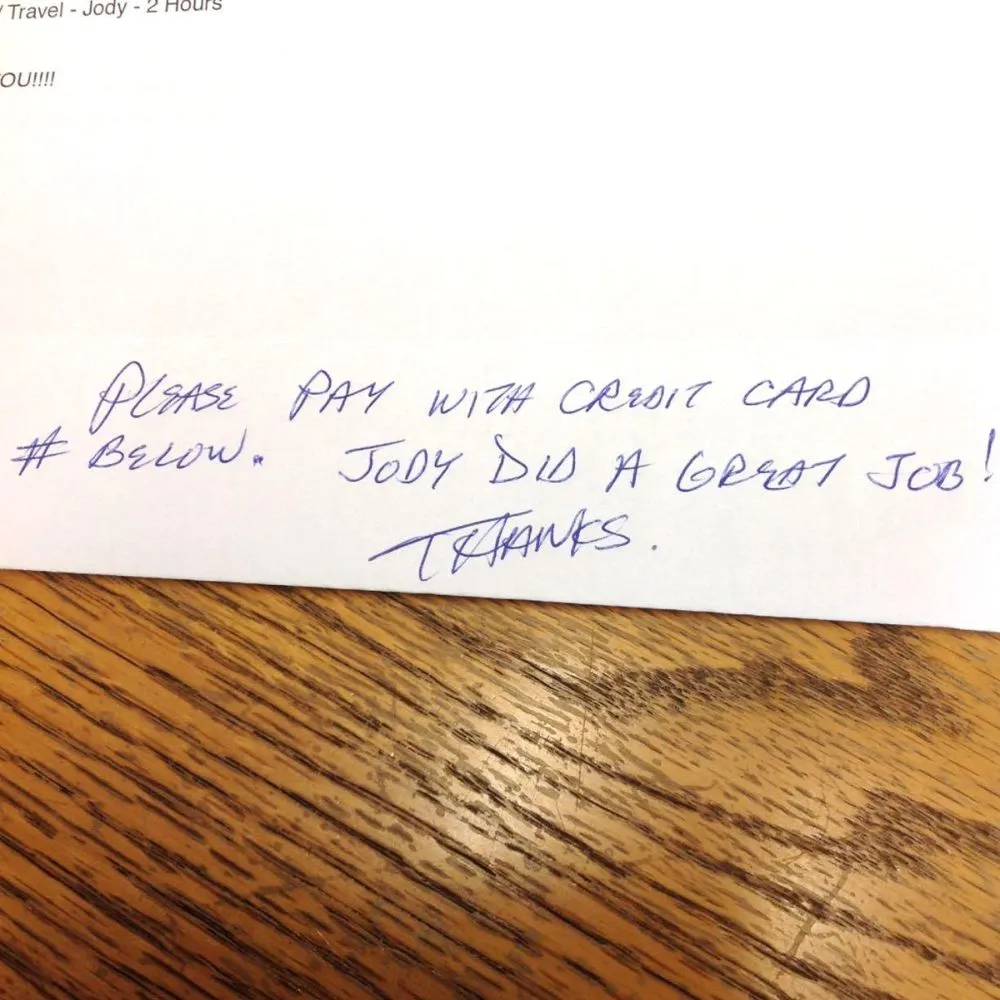 / Travel - Jody - 2 Hours
OU!!!!
PLEASE PAY WITH CREDIT CARD
# BELOW. JODY DID A GREAT JOB!
THANKS.